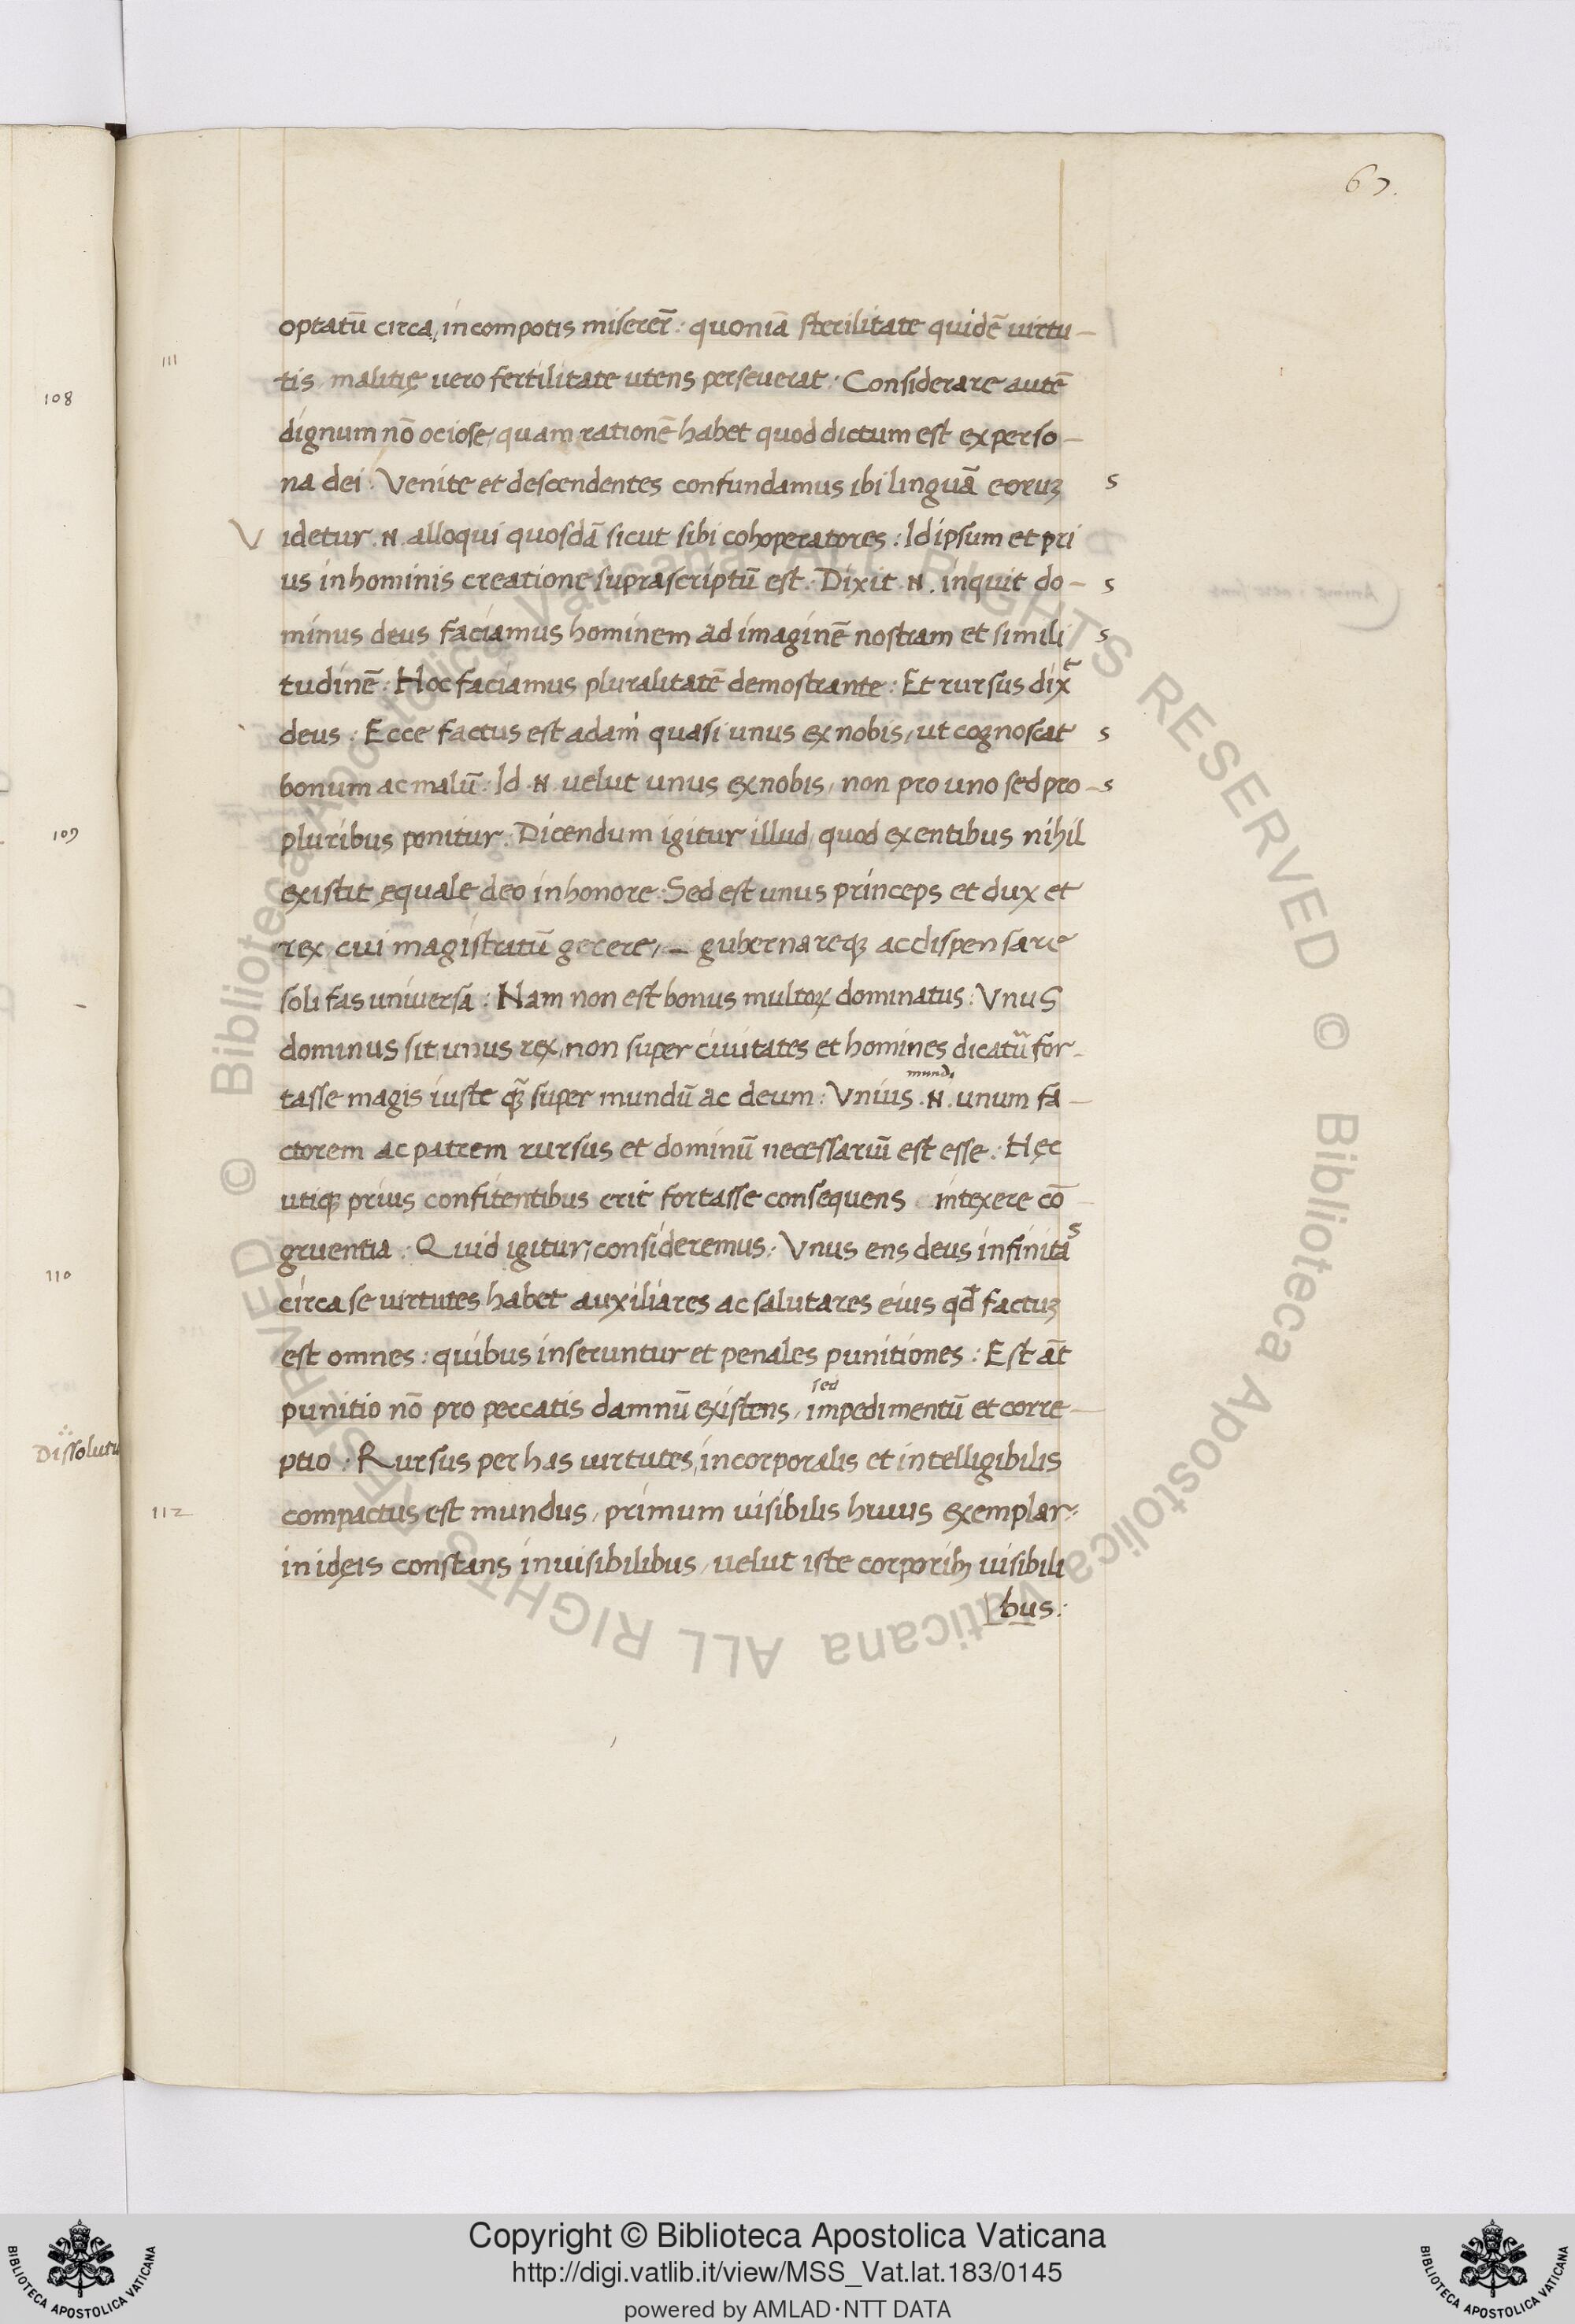 67.
optatū circa, incompotis miserer̄: quoniā sterilitate quidē uirtu–
111
tis malitię uero fertilitate utens perseuerat: Considerare autē
108
dignum nō ociose, quam rationē habet quod dictum est ex perso–
na dei: Venite et descendentes confundamus ibi linguā eoruꝫ s
V idetur .N. alloqui quosdā sicut sibi cohoperatores: Id ipsum et pri
us in hominis creatione suprascriptū est: Dixit .N. inquit do– s
minus deus faciamus hominem ad imaginē nostram et simili s
tudinē: Hoc faciamus pluralitatē demostrante: Et rursus dix̄t
deus: Ecce factus est adam quasi unus ex nobis, ut cognoscat s
bonum ac malū: Id .N. uelut unus ex nobis, non pro uno sed pro –s
109
pluribus ponitur: Dicendum igitur illud, quod ex entibus nihil
existit equale deo in honore: Sed est unus princeps et dux et
rex cui magistratū gerere, – gubernareqꝫ ac dispensare
soli fas uniuersa: Nam non est bonus multoꝝ dominatus: Vnus
dominus sit, unus rex, non super ciuitates et homines dicatū for–
mundi
tasse magis iuste qꝫ̄ super mundū ac deum: Vnius .N. unum fa–
ctorem ac patrem rursus et dominū necessariū est esse: Hęc
utiqꝫ prius confitentibus erit fortasse consequens intexere cō
gruentia: Quid igitur, consideremus: Vnus ens deus infinitas
110
circa se uirtutes habet auxiliares ac salutares eius qd̄ factuꝫ
est omnes: quibus inseruntur et penales punitiones: Est āt
sed
punitio nō pro peccatis damnū existens, impedimentū et corre–
Dissolutu
ptio: Rursus per has uirtutes, incorporalis et intelligibilis
112
compactus est mundus, primum uisibilis huius exemplar:
in idęis constans inuisibilibus, uelut iste corporibꝫ uisibili
bus:
© Biblioteca Apostolica Vaticana ALL RIGHTS RESERVED © Biblioteca Apostolica Vaticana ALL RIGHTS RESERVED
BIBLIOTECA APOSTOLICA VATICANA
Copyright © Biblioteca Apostolica Vaticana
http://digi.vatlib.it/view/MSS_Vat.lat.183/0145
powered by AMLAD·NTT DATA
BIBLIOTECA APOSTOLICA VATICANA